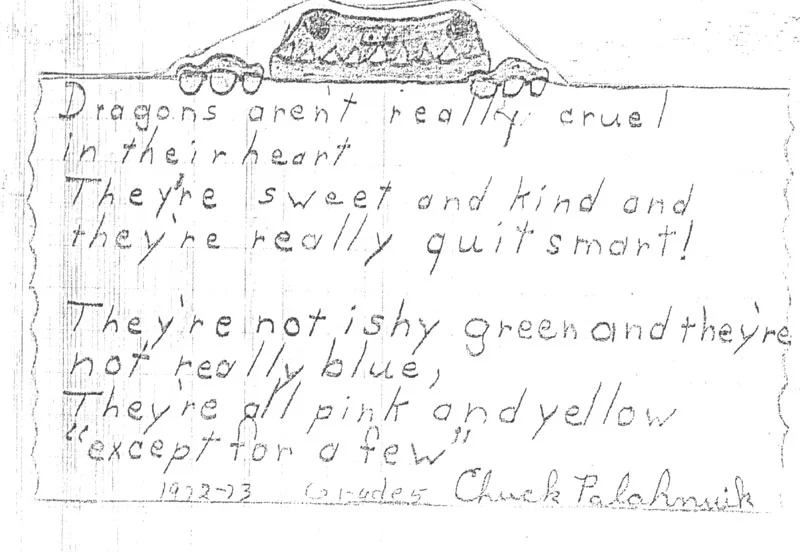 Dragons aren't really cruel
in their heart
They're sweet and kind and
they're really quit smart!
They're not ishy green and they're
not really blue,
They're all pink and yellow
"except for a few"
1972-73 Grade 5 Chuck Palahnuik